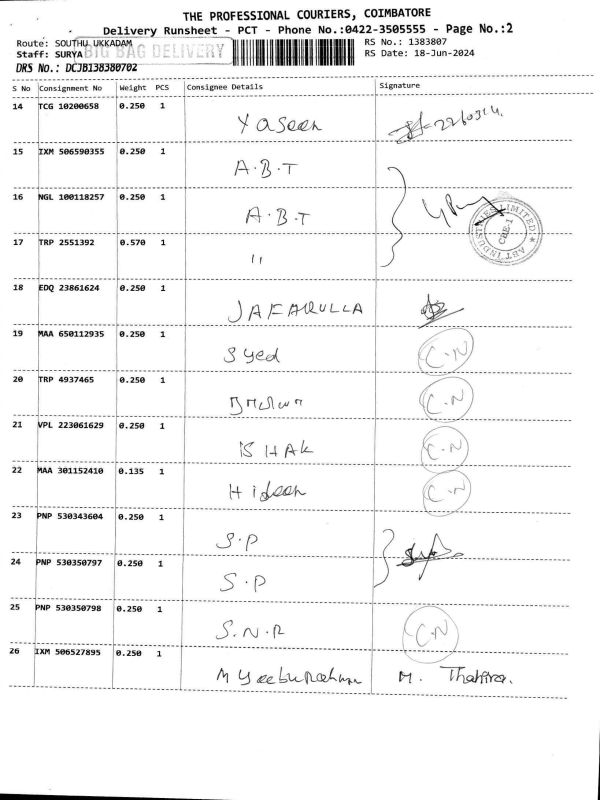 THE PROFESSIONAL COURIERS, COIMBATORE
Delivery Runsheet - PCT - Phone No.:0422-3505555 - Page No.:2
Route: SOUTHU UKKADAM
RS No.: 1383807
Staff: SURYA BIG BAG DELIVERY
RS Date: 18-Jun-2024
DRS No.: DCJB138380702
S No Consignment No Weight PCS Consignee Details Signature
14 TCG 10200658 0.250 1 Yaseen
15 IXM 506590355 0.250 1 A.B.T
16 NGL 100118257 0.250 1 A.B.T
ABT INDUSTRIES LIMITED ★ CBE-1
17 TRP 2551392 0.570 1 "
18 EDQ 23861624 0.250 1 JAFARULLA
19 MAA 650112935 0.250 1 Syed C.N
20 TRP 4937465 0.250 1 C.N
21 VPL 223061629 0.250 1 ISHAK C.N
22 MAA 301152410 0.135 1 C.N
23 PNP 530343604 0.250 1 S.P
24 PNP 530350797 0.250 1 S.P
25 PNP 530350798 0.250 1 S.N.R C.N
26 IXM 506527895 0.250 1 M M. Thahira.